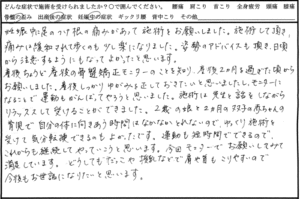 どんな症状で施術を受けられましたか？○で囲んでください。 腰痛 肩こり 首こり 全身疲労 頭痛 膝痛
骨盤のゆがみ 出産後の症状 妊娠中の症状 ギックリ腰 背中こり その他
妊娠中に足のつけ根の痛みがあって施術をお願いしました。施術して頂き、
痛みが緩和されて歩くのも少し楽になりました。姿勢のアドバイスも頂き、日頃
から注意するようにもなってよかったと思います。
産後ちょうど産後の骨盤矯正モニターのことを知り、産後2カ月を過ぎた頃から
お願いしました。産後しっかりゆがみを正しておきたいと思いましたし、モニターに
なることで運動もがんばってやろうと思いました。施術は先生と話をしながら
リラックスして受けることができました。2歳の娘と2カ月の双子の赤ちゃんの
育児で自分の体に向きあう時間はなかなかとれないので、ゆっくり施術を
受けて気分転換できるのもよかったです。運動も短時間でできるので、
これからも継続してやっていこうと思います。今回モニターでお願いしてみて
満足しています。どうしてもだっこや授乳などで肩や首もこりやすいので
今後もお世話になりたいと思います。